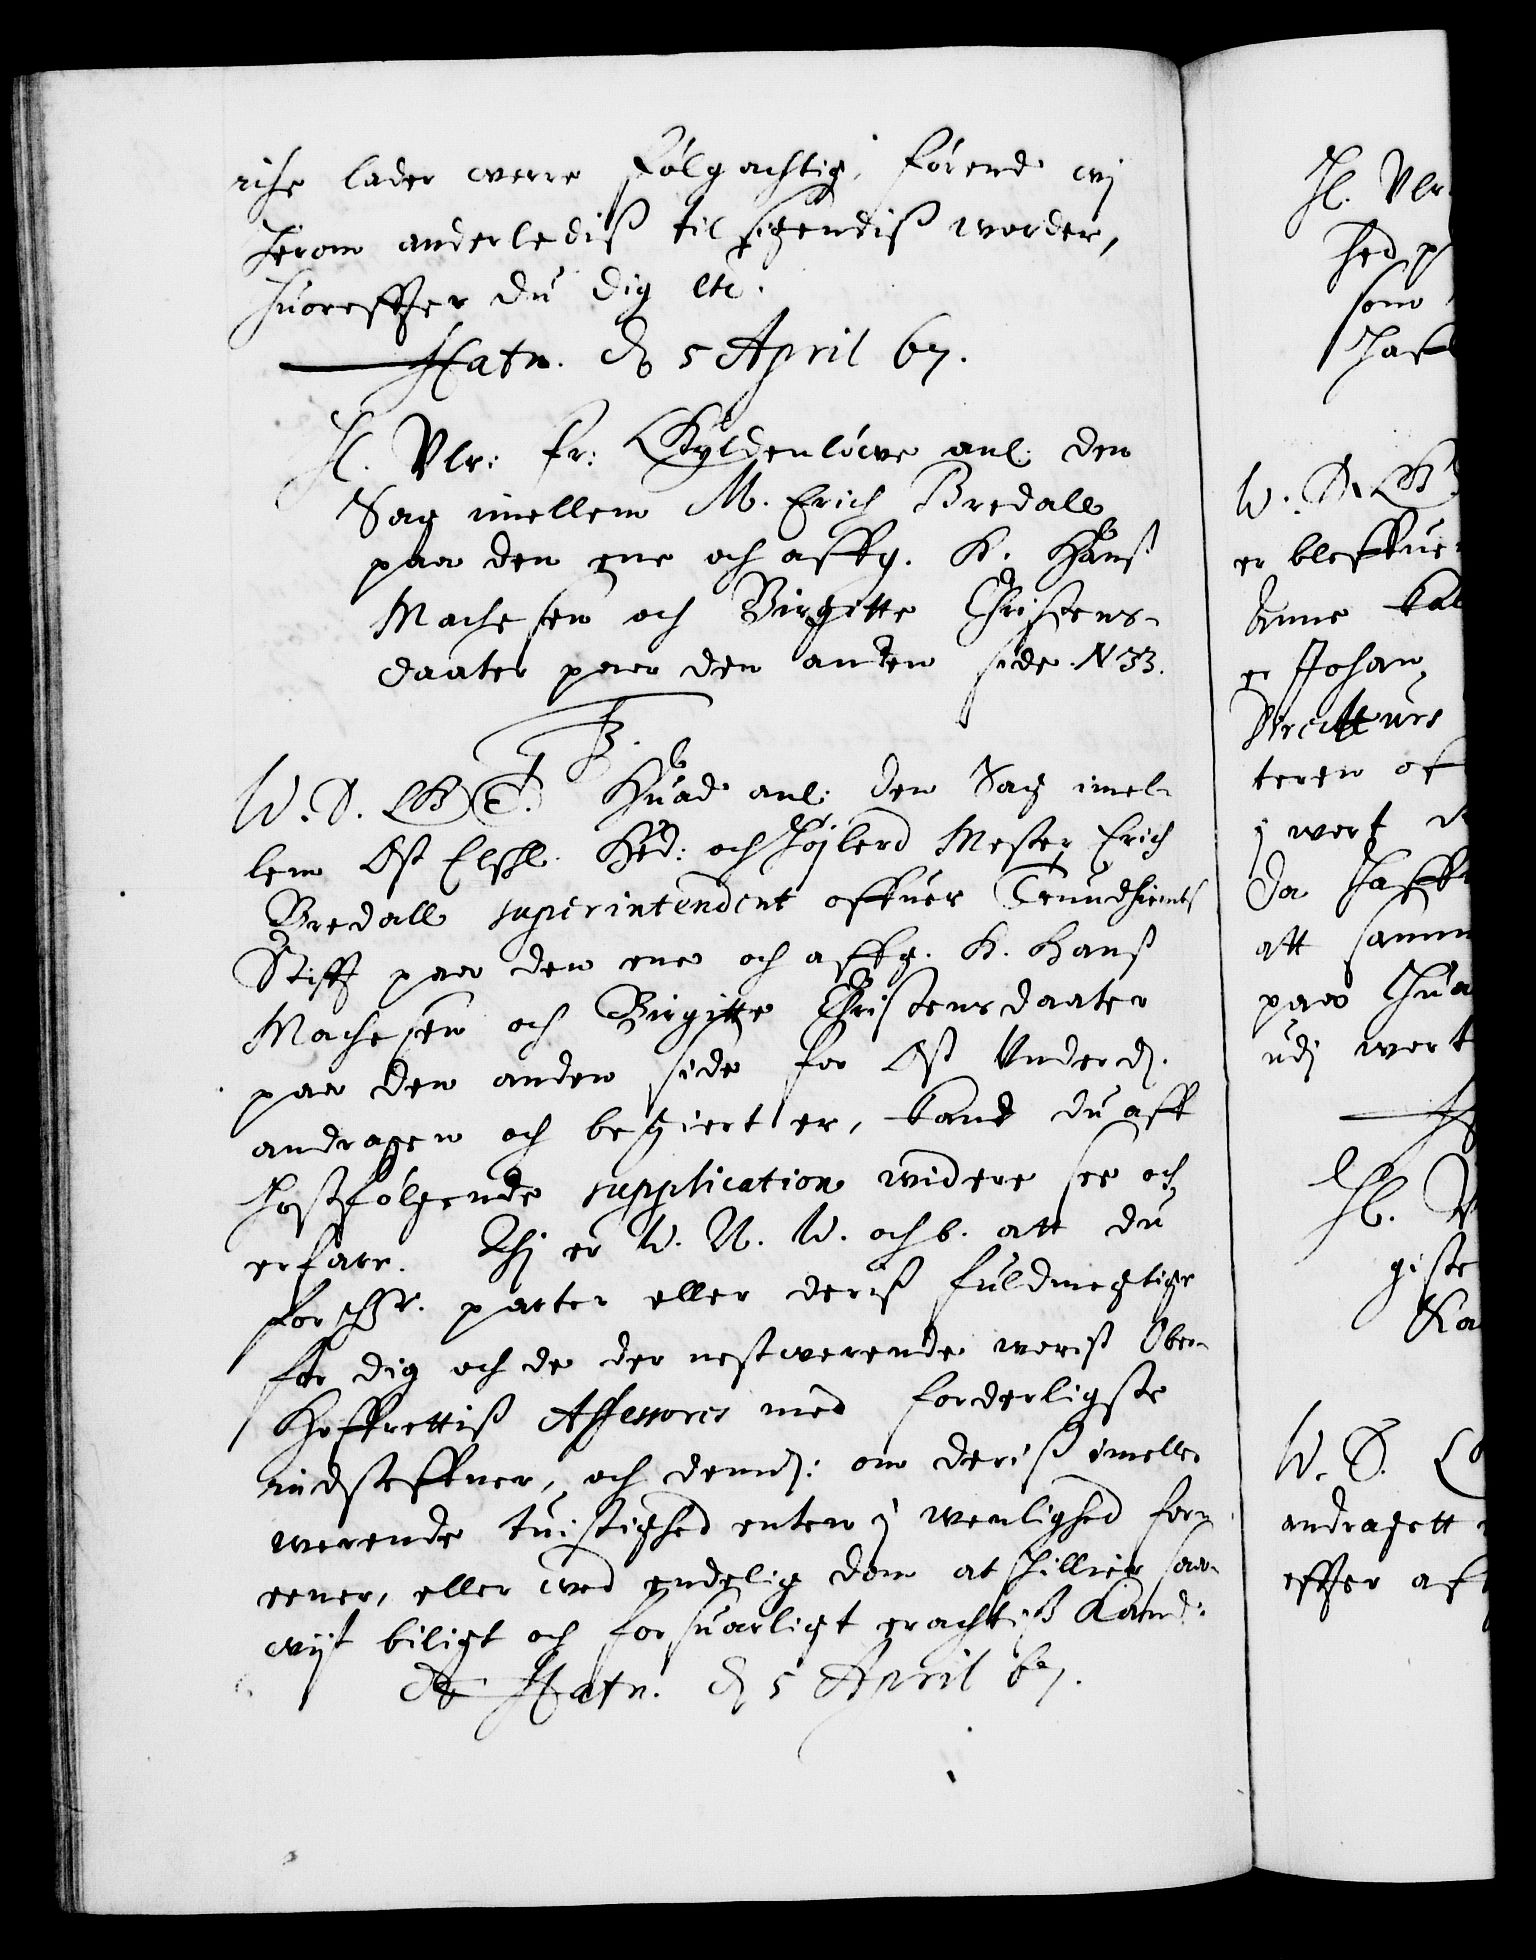 rihe lader were følgachtig, førend wj
herom anderlediß tilsigendiß worder,
huorefter du dig etc.
Hafn. d 5 April 67.
H. Vlr: Fr: Gyldenløwe anl. den
Sag imellem M. Erich Bredall
paa den ene och affg. H. Hanß
Machesen och Birgitte Christens-
daater paa den anden side. N 33.
F 3.
W. S. G. B. T. Huad anl. den Sag imel-
lem Oß Elskl. Hed: och Højlerd Mester Erich
Bredall superintendent offuer Trundhiembs
Stifft paa den ene och affg. H. Hanß
Machesen och Birgitte Christensdaater
paa den anden side for Oß Underd.
andragen och begiert er, kand du aff
hosfølgende supplication widere see och
erfare. Thj er W. N. W. och b. att du
forschr. parter eller deriß fuldmegtige
for dig och de der nestwerende woriß Ober-
Hoffrettiß Assessores med forderligste
indsteffner, och dennd: om deriß imellem
werende tuistighed enten j wenlighed for-
eener, eller wed endelig dom at skillier saa-
wijt biligt och forsuarligt erachtiß kand:
Hafn. d 5 April 67.
H. Vlr.
hed p
som
Haf
W. S. G
er bleffuen
Anne Kal
e Johan
Directeurs
teren of
j wert
da Haff
att samm
paa Hua
udj wert
H. V
giste
Ka
W. S. G
andragett
effter aff